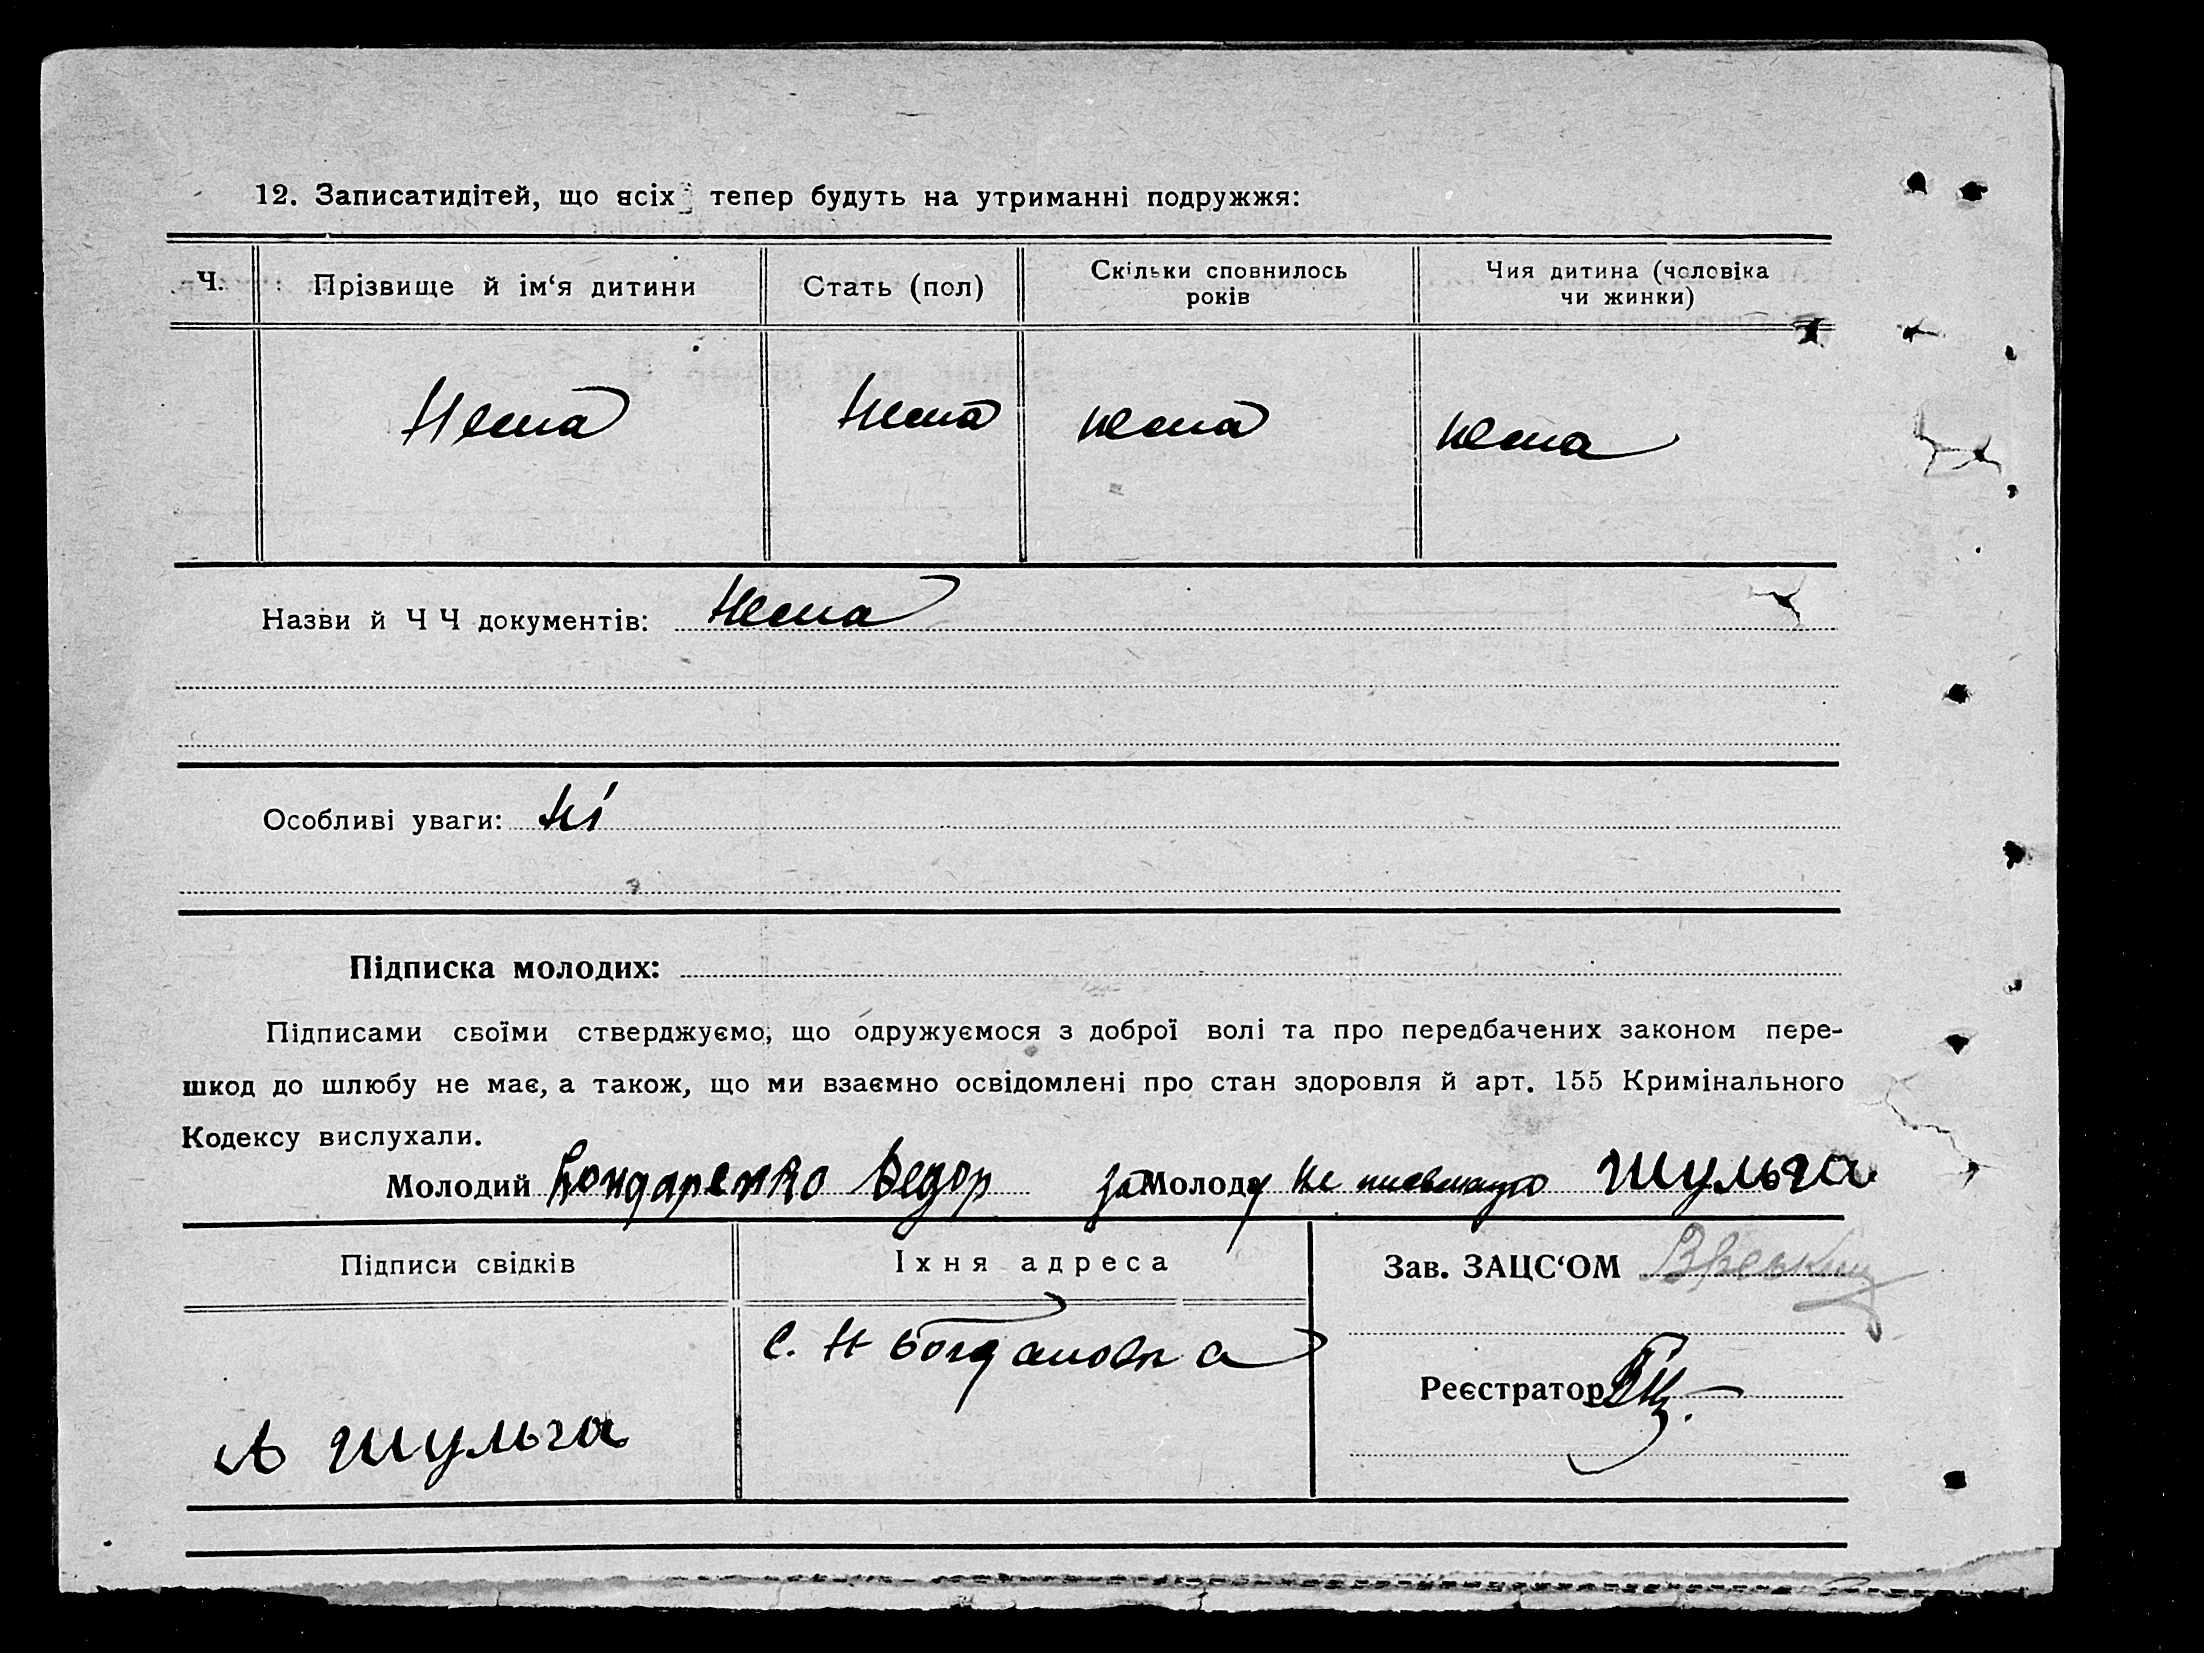 12. Записатидітей, що всіх тепер будуть на утриманні подружжя:
Ч. Прізвище й ім'я дитини Стать (пол) Скільки сповнилось років Чия дитина (чоловіка чи жинки)
Нема Нема нема нема
Назви й Ч Ч документів: Нема
Особливі уваги: Ні
Підписка молодих:
Підписами своїми стверджуємо, що одружуємося з доброї волі та про передбачених законом пере-
шкод до шлюбу не має, а також, що ми взаємно освідомлені про стан здоровля й арт. 155 Кримінального
Кодексу вислухали.
Молодий Бондаренко Федор за Молоду не письменую Шульга
Підписи свідків Їхня адреса Зав. ЗАЦС'ОМ
С. Н Богдановка
Реєстратор
А Шульга